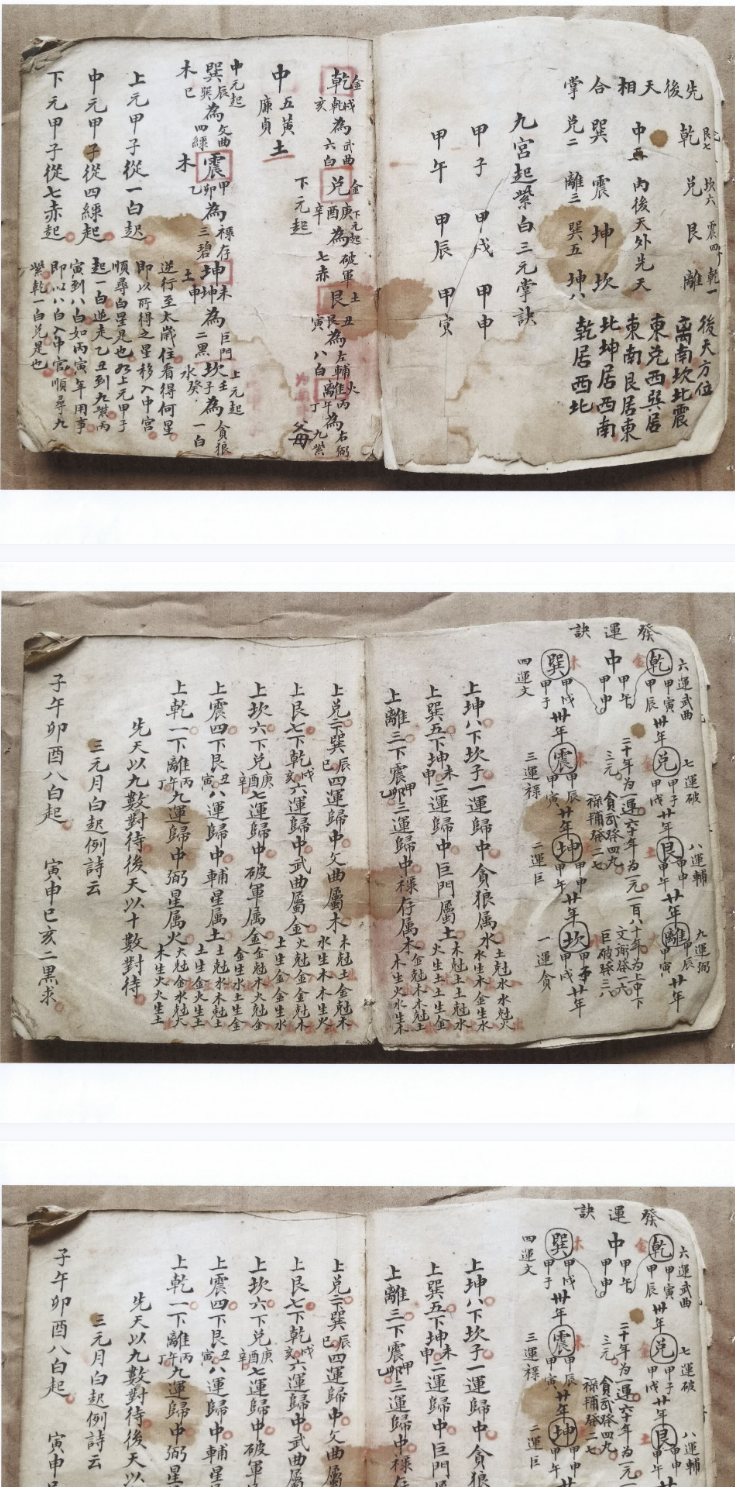 先後天相合掌
乾 兌 艮 離
艮七 坎六 震四 乾一
中五 內後天外先天
巽 震 坤 坎
兌二 離三 巽五 坤八
後天方位
离南坎北震
東兌西巽居
東南艮居東
北坤居西南
乾居西北
九宮起紫白三元掌訣
甲子 甲戌 甲申
甲午 甲辰 甲寅
乾為六白 武曲 金 戌乾亥
兌為七赤 破軍 金 庚酉辛 下元起
艮為八白 左輔 土 丑艮寅
離為九紫 右弼 火 丙午丁
中五黃土
廉貞
下元起
中元起
巽為四綠 文曲 木 辰巽巳
震為三碧 祿存 木 甲卯乙
坤為二黑 巨門 土 未坤申
坎為一白 貪狼 水 壬子癸 上元起
上元甲子從一白起
中元甲子從四綠起
下元甲子從七赤起
逆行至太歲住看得何星
即以所得之星移入中宮
順尋白星是也如上元甲子
起一白逆走乙丑到九紫丙
寅到八白如丙寅年用事
即以八白入中宮順尋九
紫乾一白兌是也
發運訣
六運武曲 七運破 八運輔 九運弼
乾 甲寅 甲辰 廿年
兌 甲子 甲戌 廿年
艮 甲申 甲午 廿年
離 甲辰 甲寅 廿年
中 甲午 甲申
二十年為一運六十年為一元一百八十年為上中下
三元
貪武發四九
文弼發一六
祿輔發二七
巨破發三八
巽 甲戌 甲子 廿年
震 甲辰 甲寅 廿年
坤 甲申 甲午 廿年
坎 甲子 甲戌 廿年
四運文 三運祿 二運巨 一運貪
上坤八下坎子一運歸中貪狼属水
上巽五下坤未申二運歸中巨門屬土
上離三下震甲卯三運歸中祿存属木
上兌二下巽辰巳四運歸中文曲屬木
上艮七下乾戌亥六運歸中武曲屬金
上坎六下兌庚酉辛七運歸中破軍属金
上震四下艮丑寅八運歸中輔星属土
上乾一下離丙午丁九運歸中弼星属火
先天以九數對待後天以十數對待
三元月白起例詩云
子午卯酉八白起 寅申巳亥二黑求
發運訣
六運武曲 七運破 八運輔
乾 甲寅 甲辰 廿年
兌 甲子 甲戌 廿年
艮 甲申 甲午
中 甲午 甲申
二十年為一運六十年為一元一
三元
貪武發四九
祿輔發二七
巽 甲戌 甲子 廿年
震 甲辰 甲寅 廿年
坤 甲申 甲午
四運文 三運祿 二運巨
上坤八下坎子一運歸中貪狼
上巽五下坤未申二運歸中巨門
上離三下震甲卯三運歸中祿存
上兌二下巽辰巳四運歸中文曲屬
上艮七下乾戌亥六運歸中武曲屬
上坎六下兌庚酉辛七運歸中破軍
上震四下艮丑寅八運歸中輔星
上乾一下離丙午丁九運歸中弼星
先天以九數對待後天以
三元月白起例詩云
子午卯酉八白起 寅申